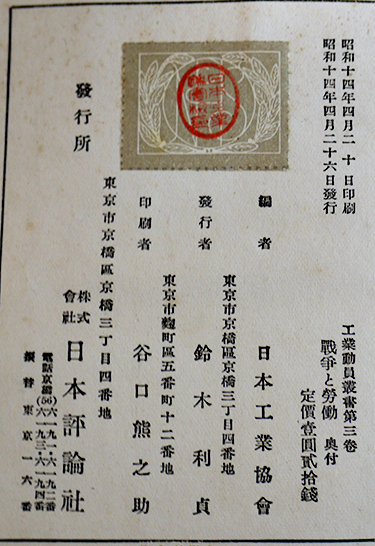 昭和十四年四月二十日印刷
昭和十四年四月二十六日發行
工業動員叢書第三卷
戰爭と勞働 奥付
定價壹圓貳拾錢
編者 日本工業協會
東京市京橋區京橋三丁目四番地
發行者 鈴木利貞
東京市麴町區五番町十二番地
印刷者 谷口熊之助
東京市京橋區京橋三丁目四番地
發行所 株式會社 日本評論社
電話京橋(56)六一九一・六一九二番
六一九三・六一九四番
振替東京一六番